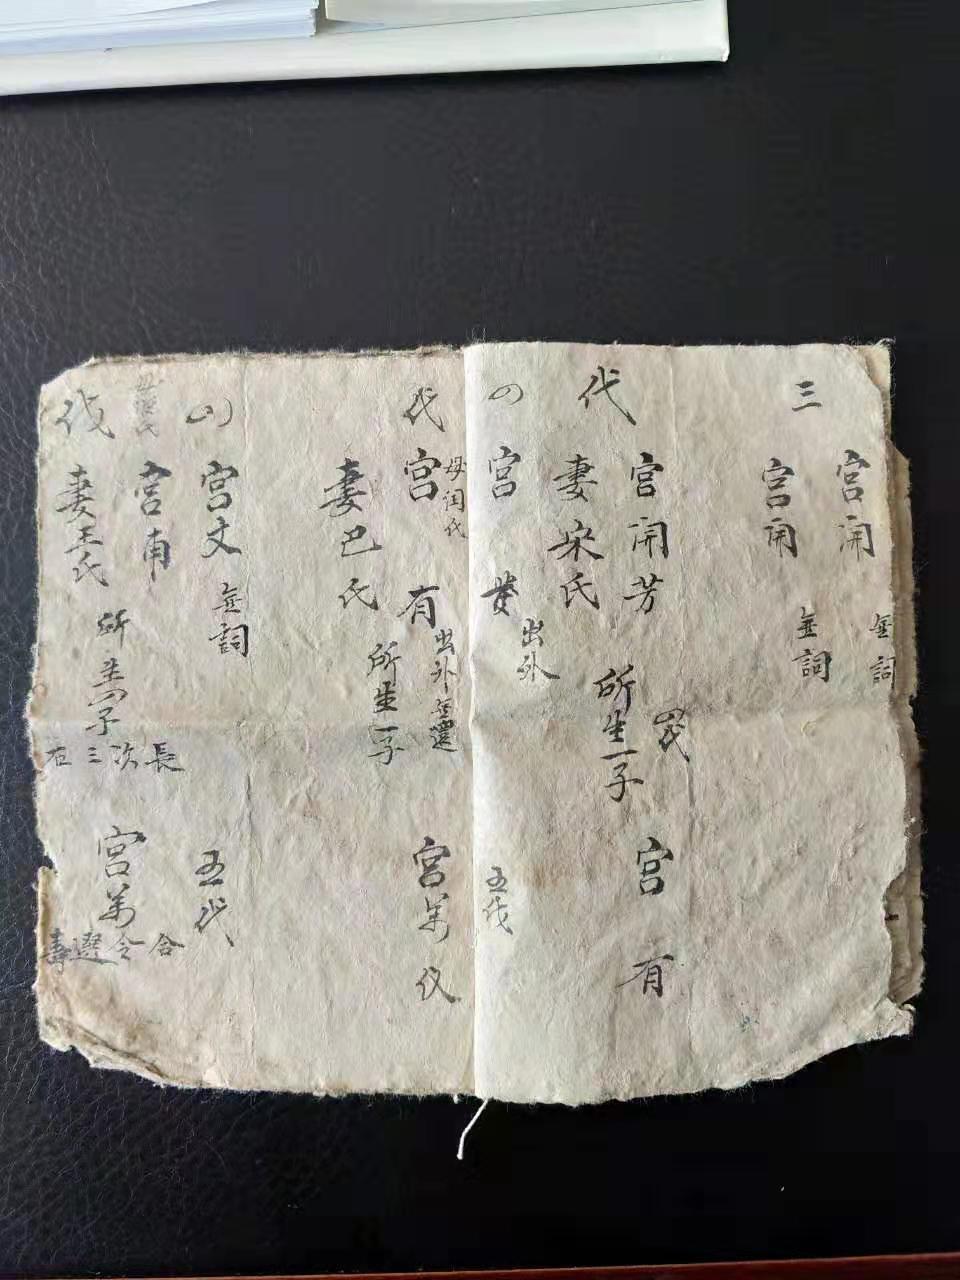 三
代
宮開
無詞
宮開
無詞
宮開芳
妻宋氏
所生一子
四代
宮有
代
宮
出外
母閆氏
宮有
出外無還
妻巴氏
所生一子
五代
宮萬仪
代
宮文
無詞
宮南
妻王氏
所生四子
長次三四
五代
宮萬
合令選壽